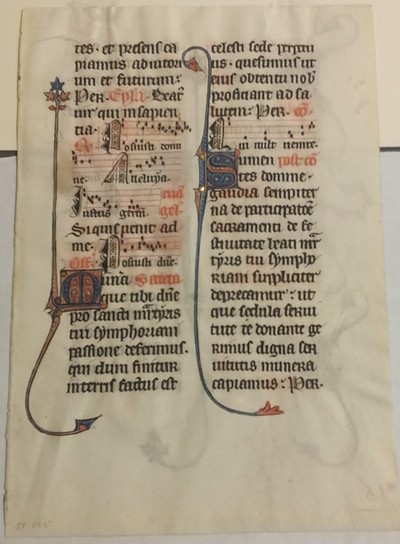 tes. et presens ca
piamus adiutori
um et futurum:
Per. Epła. Beat'
uir qui in sapien
tia.
Posuisti dom
ne. Alleluya.
Iustus germ. euā
gel.
Si quis uenit ad
me.
Off. Posuisti dñe.
Munera Secreta
que tibi dñe
pro sancti mr̄tyris
tui symphoriani
passione deferimus.
qui dum finitur
in terris factus est
celesti sede perpetu
us. quesumus ut
eius obtentu nob'
proficiant ad sa
lutem: Per. cō.
Qui mihi
Sumen post cō
tes domine.
gaudia sempiter
na de participatōe
sacramenti de fe
stiuitate beati mr̄
tyris tui sympho
riani suppliciter
deprecamur: ut
que sedula serui
tute te donante ge
rimus digna ser
uitutis munera
capiamus: Per.